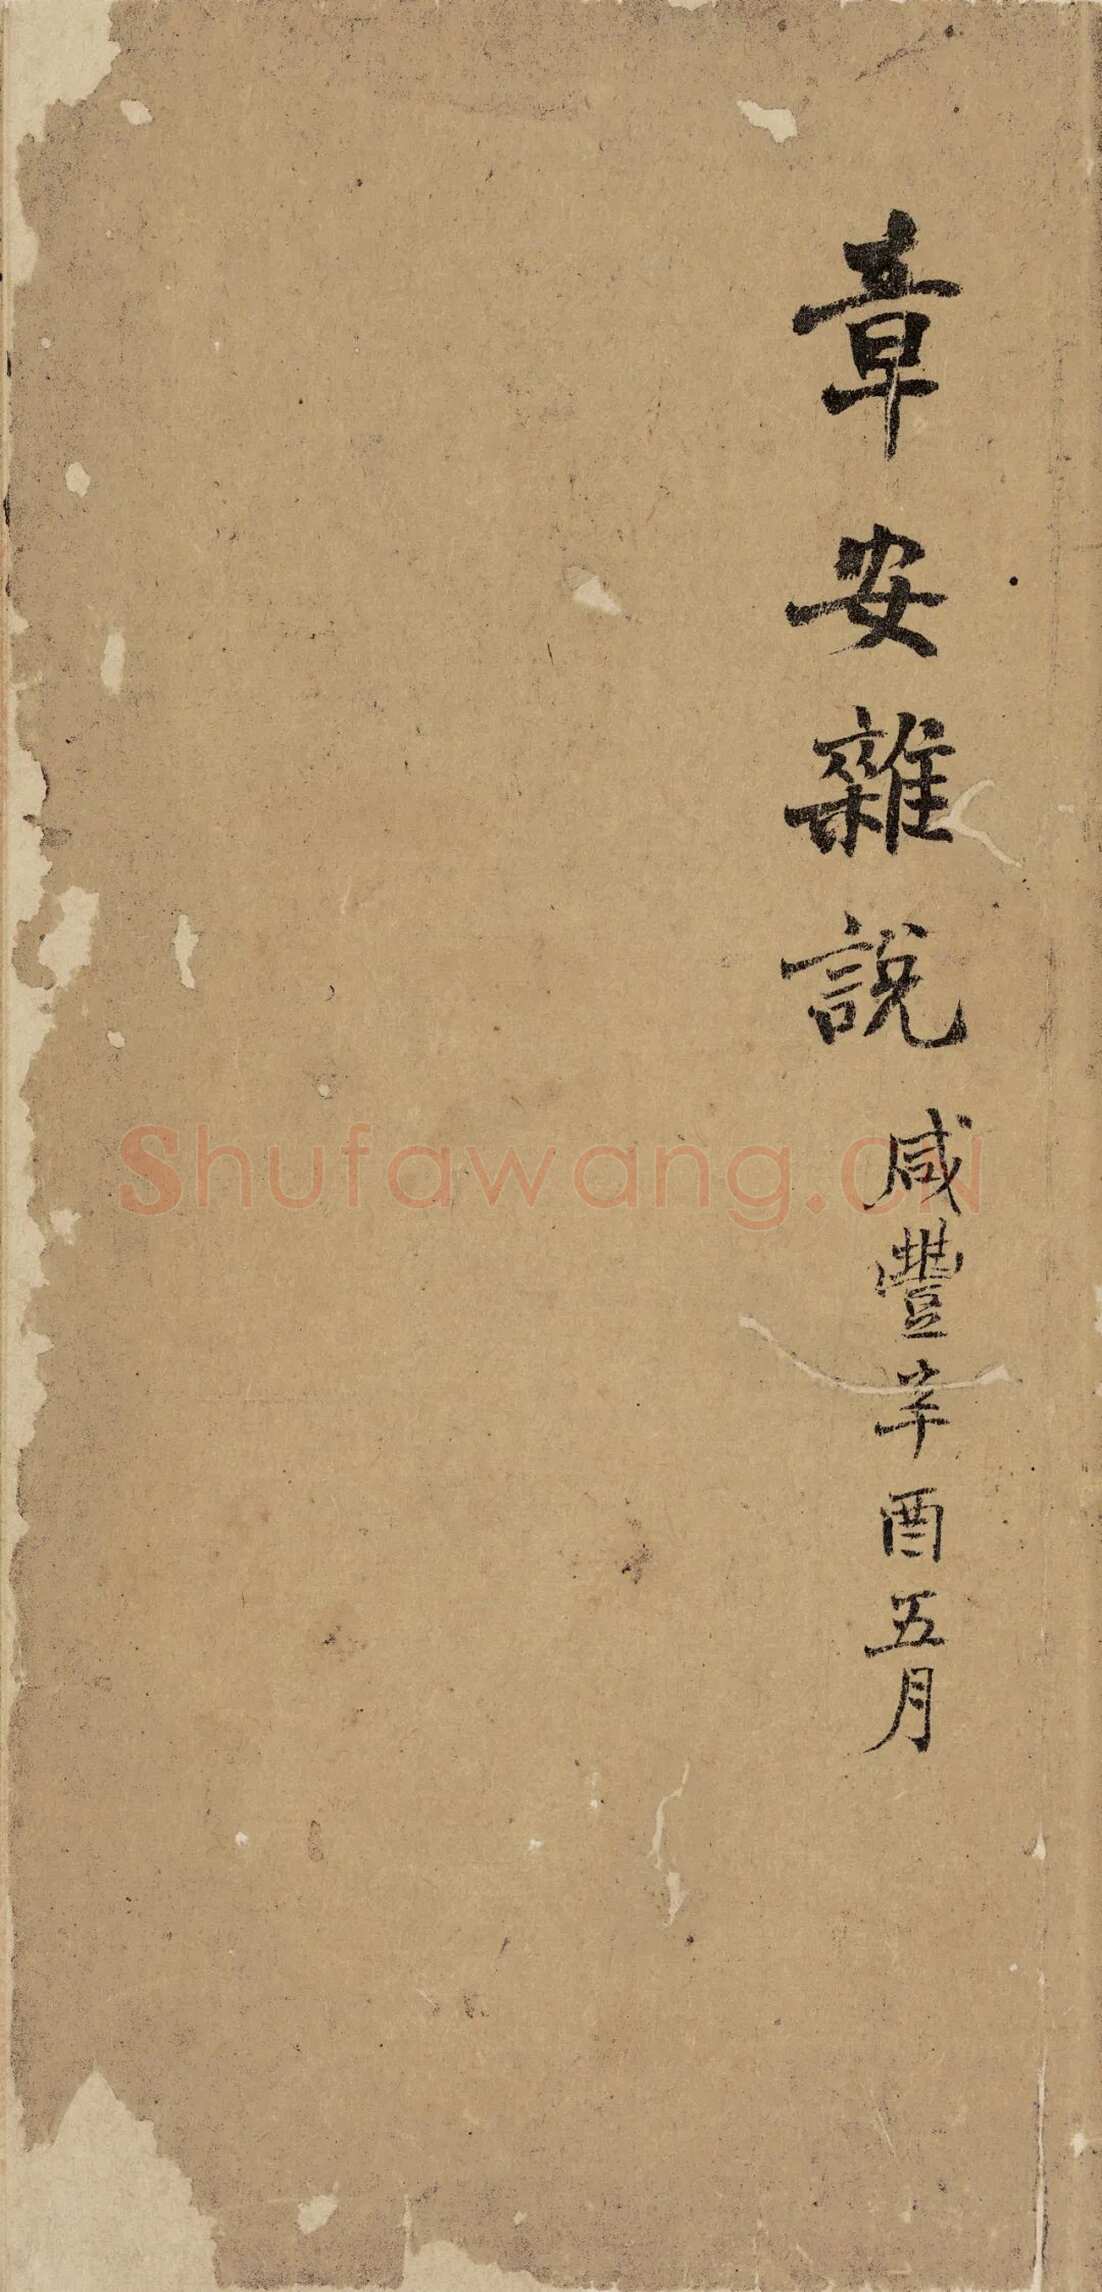 章安雜說 咸豐辛酉五月
Shufawang.CN